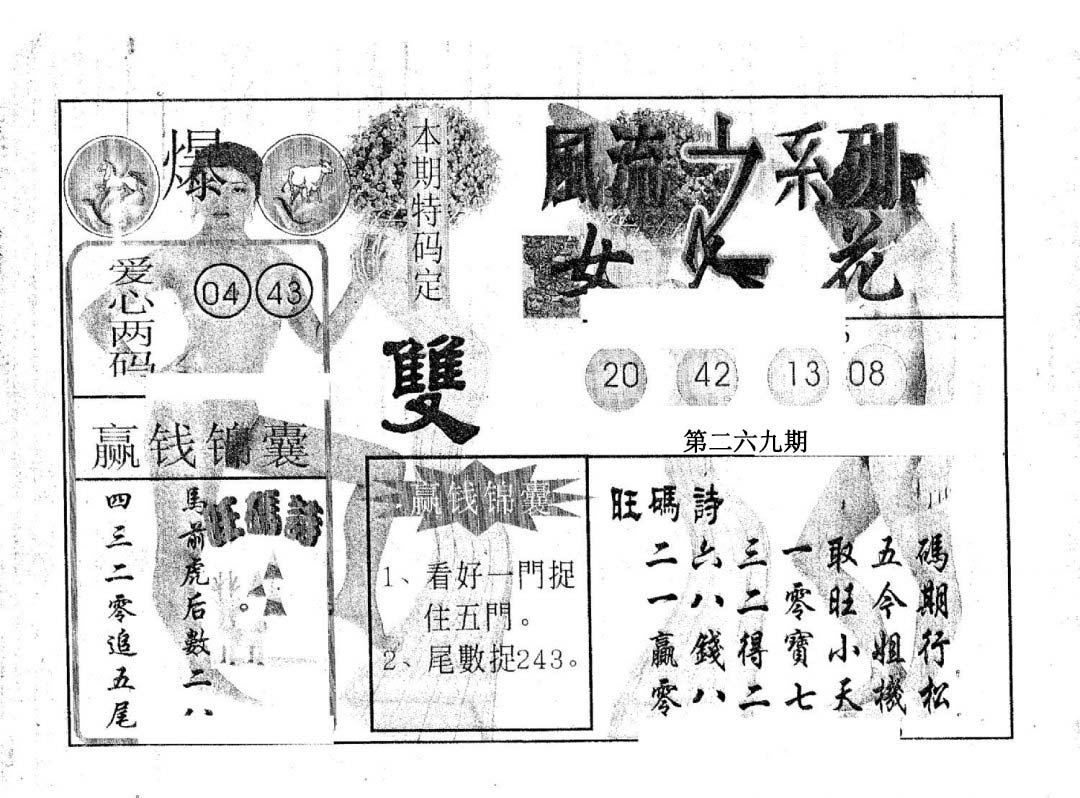 爆
爱心两码
04 43
赢钱锦囊
旺碼詩
馬前虎后数二八
四三二零追五尾
本期特码定
雙
赢钱锦囊
1、看好一門捉
住五門。
2、尾數捉243。
風流之系列
女人花
20 42 13 08
第二六九期
旺碼詩
碼期行松
五令姐機
取旺小天
一零寶七
三二得二
六八錢八
二一贏零